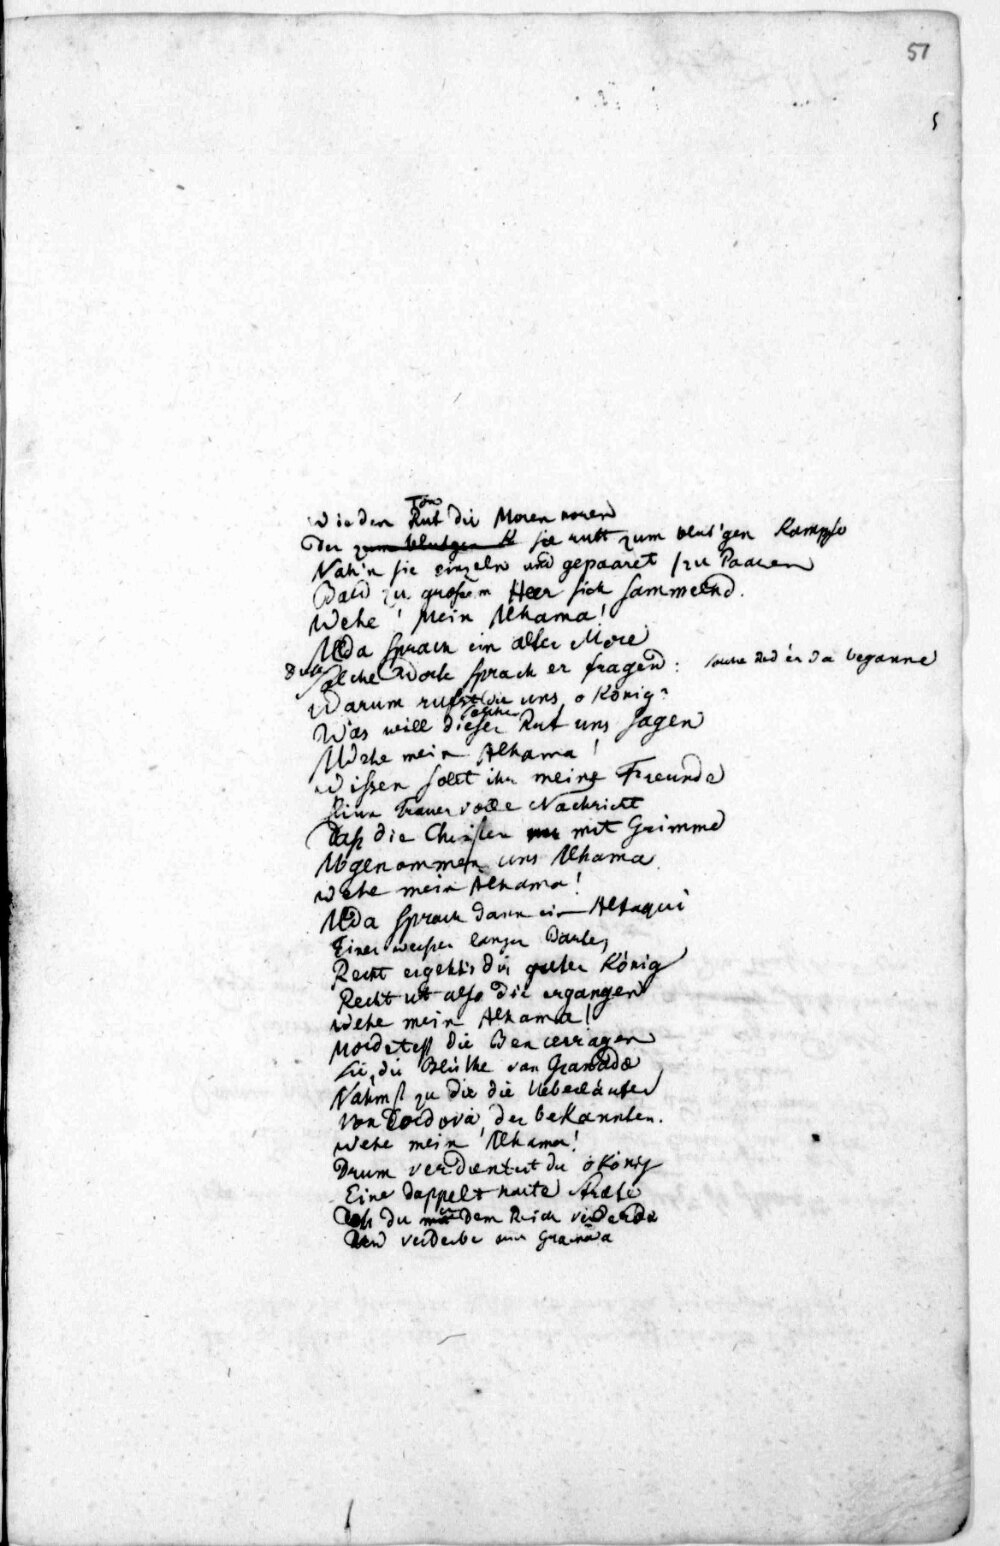 51
5
Ton
Wie den Ruf die Moren noren
Der zum blutgen K sie ruft zum blut'gen Kampfe
Nah'n sie einzeln und gepaaret / zu Paaren
Bald zu großem Heer sich sammelnd.
Wehe! Mein Alhama!
Alda sprach ein alter More
Diese
solche Worte sprach er fragend: solche Red' er da beganne
Warum rufst du uns, o König?
solcher
Was will dieser Ruf uns sagen
Wehe mein Alhama!
Wißen sollt ihr meine Freunde
Eine Trauervolle Nachricht
Daß die Christen mit Grimme
Abgenommen uns Alhama
wehe mein Alhama!
Alda sprach dann ein Alfaqui
Einer weißer langer Barte,
Recht ergeht's dir guter König
Recht ist also dir ergangen
Wehe mein Alhama!
Mordetest die Bencerragen
Sie, die Blüthe von Granada
Nahmst zu dir die Ueberläufer
Von Cordova, der bekannten.
wehe mein Alhama!
Drum verdientest du o König
Eine doppelt harte Strafe
Daß du mit dem Reich verderbe
Und verderbe nun Granada